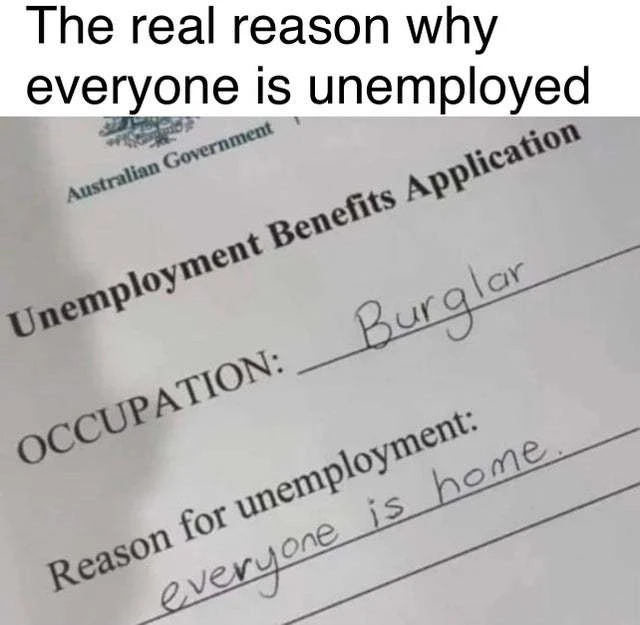 The real reason why
everyone is unemployed
Australian Government
Unemployment Benefits Application
OCCUPATION: Burglar
Reason for unemployment:
everyone is home.